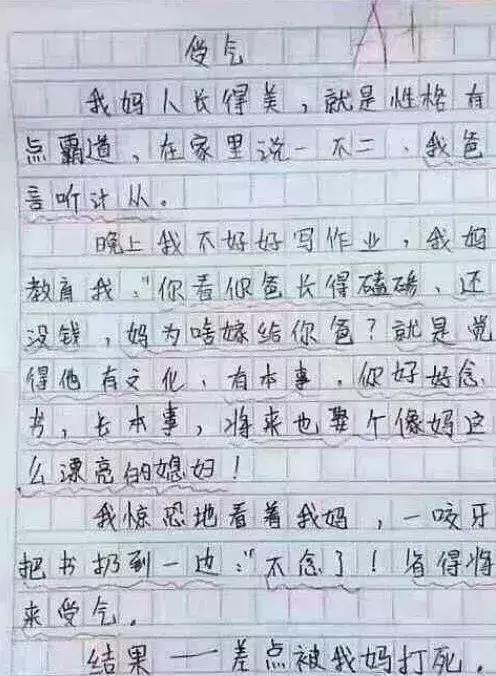 受气
A+
我妈人长得美，就是性格有
点霸道，在家里说一不二、我爸
言听计从。
晚上我不好好写作业，我妈
教育我："你看你爸长得磕碜、还
没钱，妈为啥嫁给你爸？就是觉
得他有文化、有本事，你好好念
书，长本事，将来也娶个像妈这
么漂亮的媳妇！
我惊恐地看着我妈，一咬牙
把书扔到一边："不念了！省得将
来受气。
结果——差点被我妈打死。